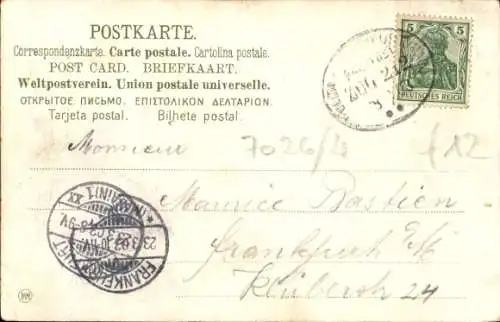 POSTKARTE.
Correspondenzkarte. Carte postale. Cartolina postale.
POST CARD. BRIEFKAART.
Weltpostverein. Union postale universelle.
ОТКРЫТОЕ ПИСЬМО. ΕΠΙΣΤΟΛΙΚΟΝ ΔΕΛΤΑΡΙΟΝ.
Tarjeta postal. Bilhete postal.
5 5
DEUTSCHES REICH
ZUG 212
Monsieur 7026/2 £12
Maurice Bastien
Frankfurt a/M
Klüberstr 24
FRANKFURT
(MAIN) 1